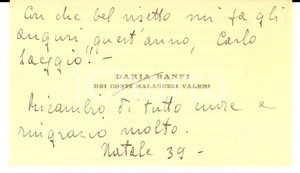 Con che bel visetto mi fa gli
auguri quest'anno, Carlo
Saggio!! -
DARIA BANFI
DEI CONTI MALAGUZZI VALERI
Ricambio di tutto cuore e
ringrazio molto.
Natale 39 -